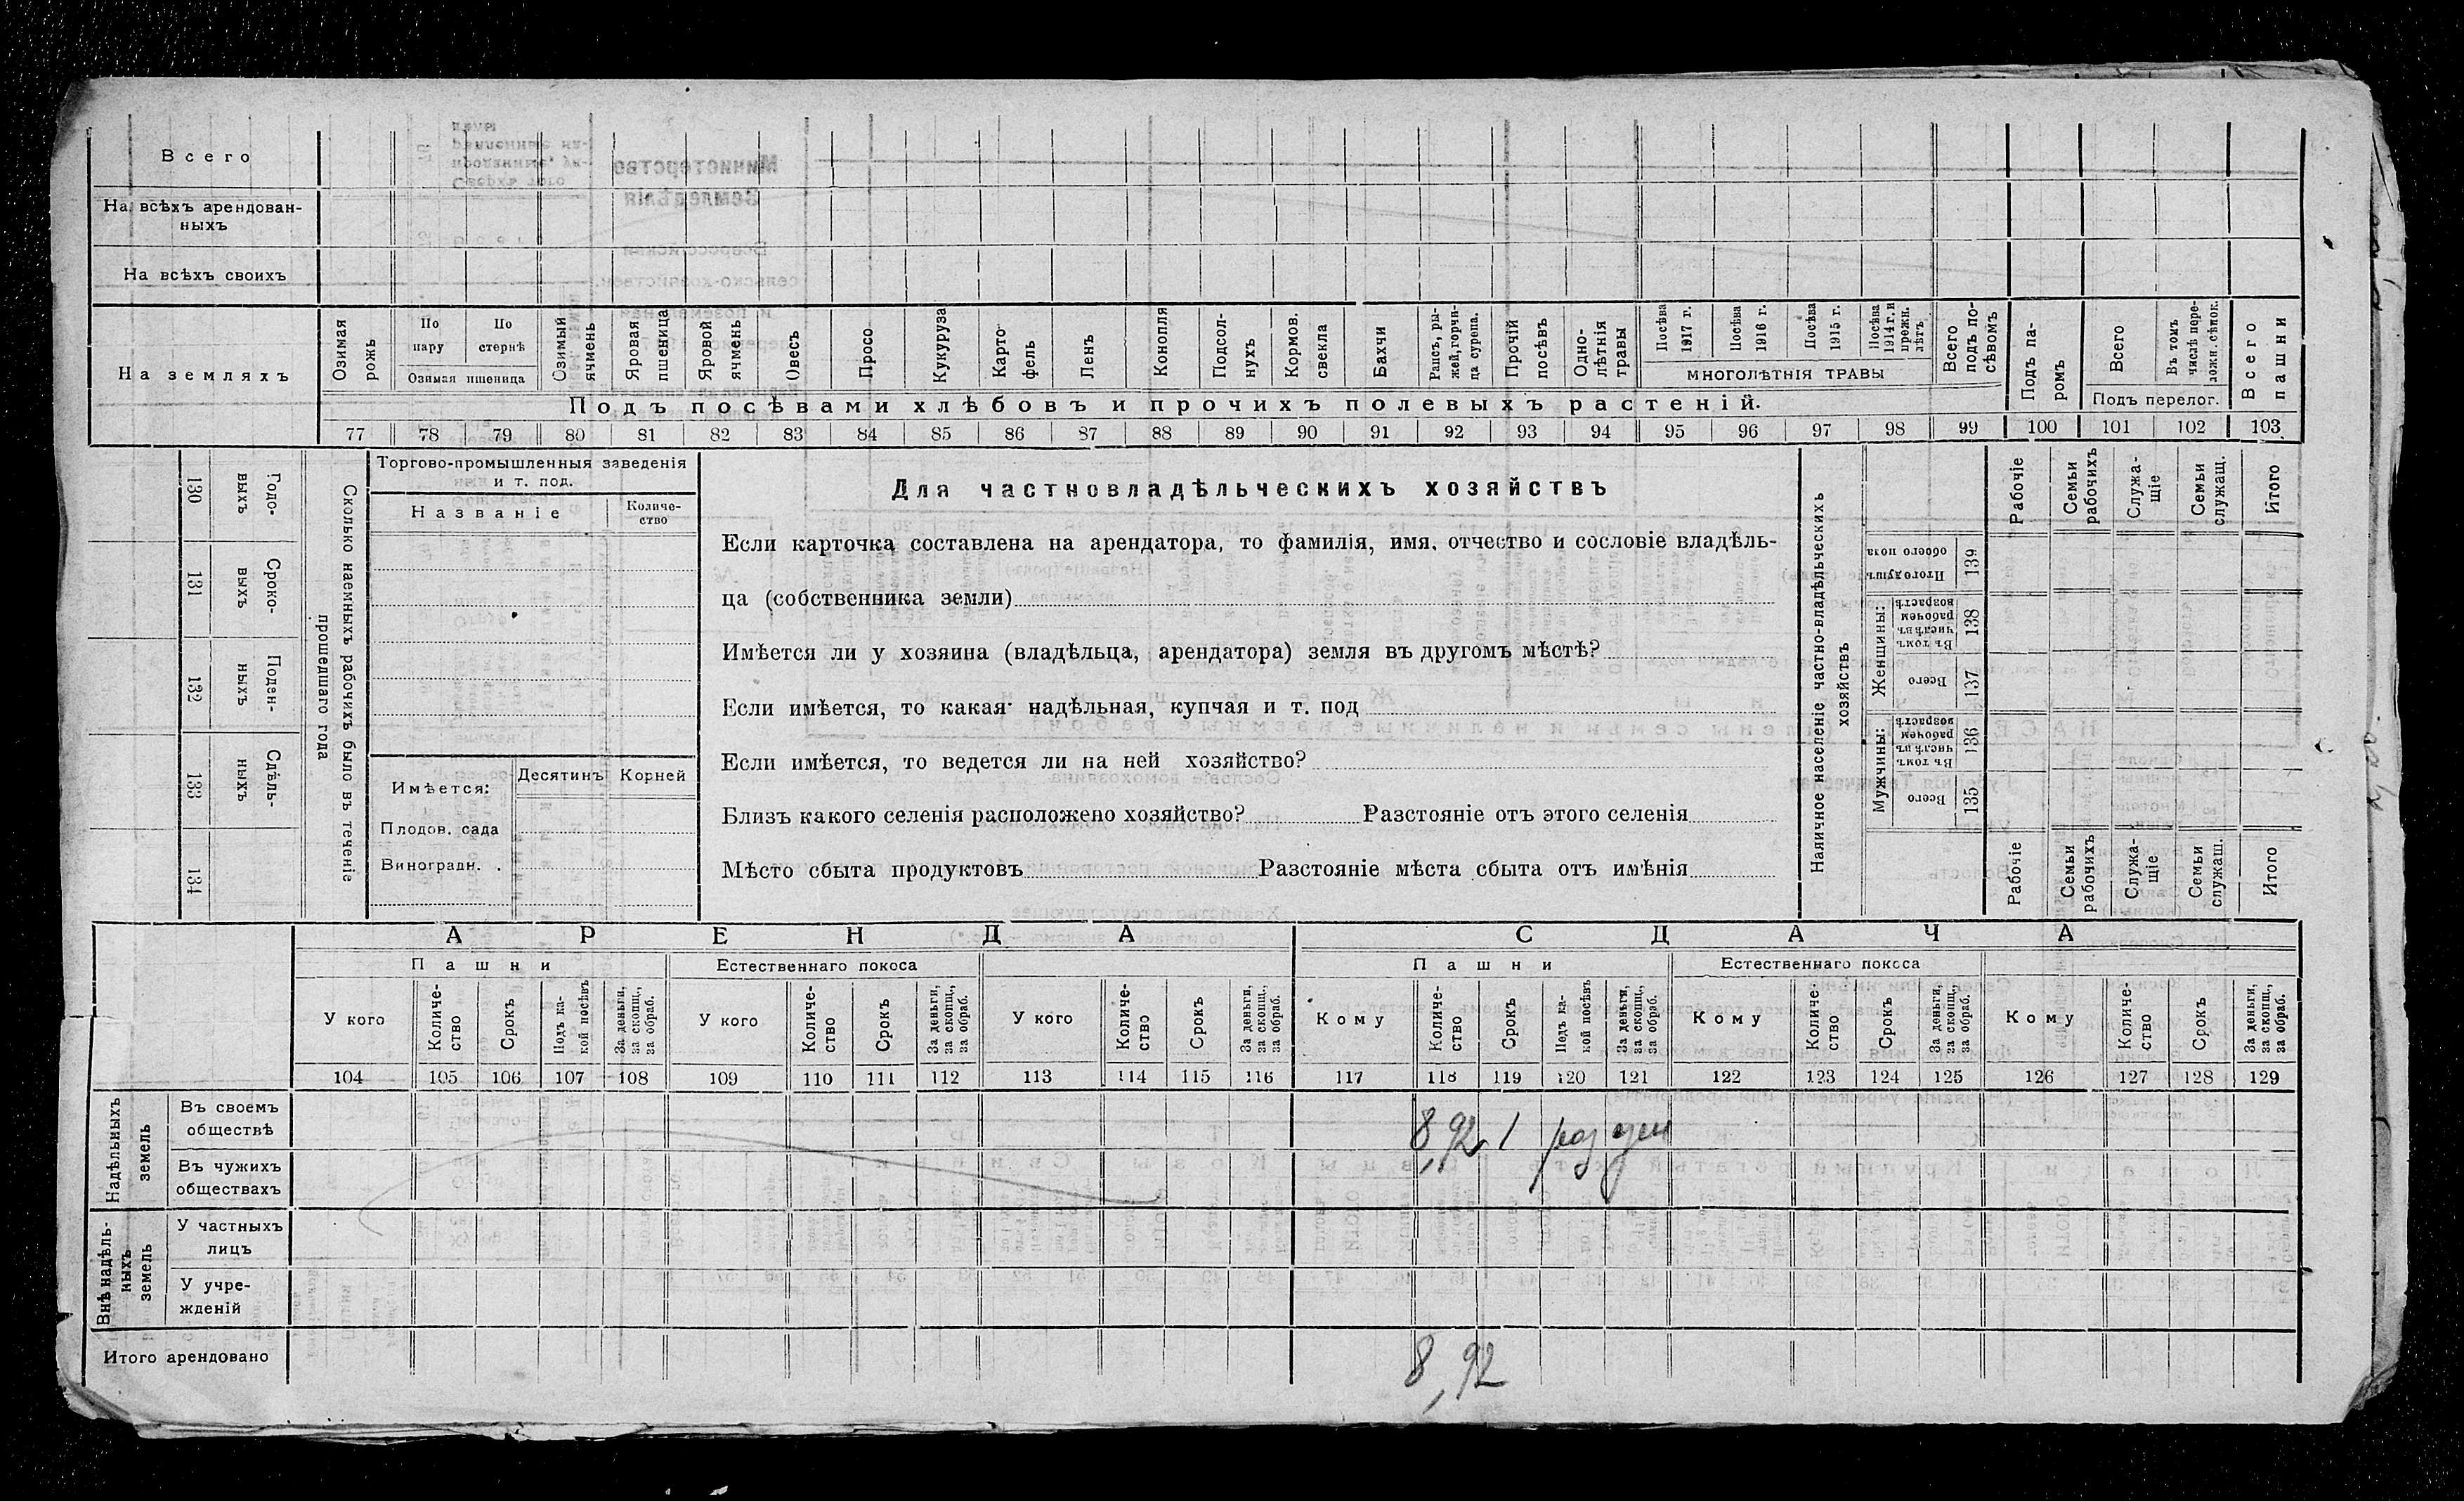 Всего
На всѣхъ арендован-
ныхъ
На всѣхъ своихъ
На земляхъ
Озимая рожь
По пару
По стернѣ
Озимая пшеница
Озимый ячмень
Яровая пшеница
Яровой ячмень
Овесъ
Просо
Кукуруза
Карто-фель
Ленъ
Конопля
Подсол-нухъ
Кормов. свекла
Бахчи
Рапсъ, ры-жей, горчи-ца сурепа.
Прочій посѣвъ
Одно-лѣтнія травы
Посѣва 1917 г.
Посѣва 1916 г.
Посѣва 1915 г.
Посѣва 1914 г. и прежн. лѣтъ
МНОГОЛѢТНІЯ ТРАВЫ
Всего подъ по-сѣвомъ
Подъ па-ромъ
Всего
Въ томъ числѣ пере-ложн. сѣнок.
Подъ перелог.
Всего пашни
Подъ посѣвами хлѣбовъ и прочихъ полевыхъ растеній.
77 78 79 80 81 82 83 84 85 86 87 88 89 90 91 92 93 94 95 96 97 98 99 100 101 102 103
130 Годо-выхъ
131 Сроко-выхъ
132 Поден-ныхъ
133 Сдѣль-ныхъ
134
Сколько наемныхъ рабочихъ было въ теченіе
прошедшаго года
Торгово-промышленныя заведенія
и т. под.
Названіе
Количе-ство
Имѣется:
Десятинъ
Корней
Плодов. сада
Виноградн. .
Для частновладѣльческихъ хозяйствъ
Если карточка составлена на арендатора, то фамилія, имя, отчество и сословіе владѣль-
ца (собственника земли)
Имѣется ли у хозяина (владѣльца, арендатора) земля въ другомъ мѣстѣ?
Если имѣется, то какая: надѣльная, купчая и т. под
Если имѣется, то ведется ли на ней хозяйство?
Близъ какого селенія расположено хозяйство? Разстояніе отъ этого селенія
Мѣсто сбыта продуктовъ Разстояніе мѣста сбыта отъ имѣнія
Наличное населеніе частно-владѣльческихъ
хозяйствъ
Рабочіе
Семьи рабочихъ
Служа-щіе
Семьи служащ.
Итого
Итого душъ обоего пола 139
Женщины:
Въ томъ числѣ въ рабочем возрастѣ 138
Всего 137
Мужчины:
Въ томъ числѣ въ рабочем возрастѣ 136
Всего 135
Рабочіе
Семьи рабочихъ
Служа-щіе
Семьи служащ.
Итого
АРЕНДА
СДАЧА
Пашни
Естественнаго покоса
Пашни
Естественнаго покоса
У кого
Количе-ство
Срокъ
Подъ ка-кой посѣвъ
За деньги, за скопщ., за обраб.
У кого
Количе-ство
Срокъ
За деньги, за скопщ., за обраб.
У кого
Количе-ство
Срокъ
За деньги, за скопщ., за обраб.
Кому
Количе-ство
Срокъ
Подъ ка-кой посѣвъ
За деньги, за скопщ., за обраб.
Кому
Количе-ство
Срокъ
За деньги, за скопщ., за обраб.
Кому
Количе-ство
Срокъ
За деньги, за скопщ., за обраб.
104 105 106 107 108 109 110 111 112 113 114 115 116 117 118 119 120 121 122 123 124 125 126 127 128 129
Надѣльныхъ земель
Въ своемъ
обществѣ
8,92 1
Въ чужихъ
обществахъ
Внѣ надѣль-ныхъ земель
У частныхъ
лицъ
У учре-
жденій
Итого арендовано
8,92